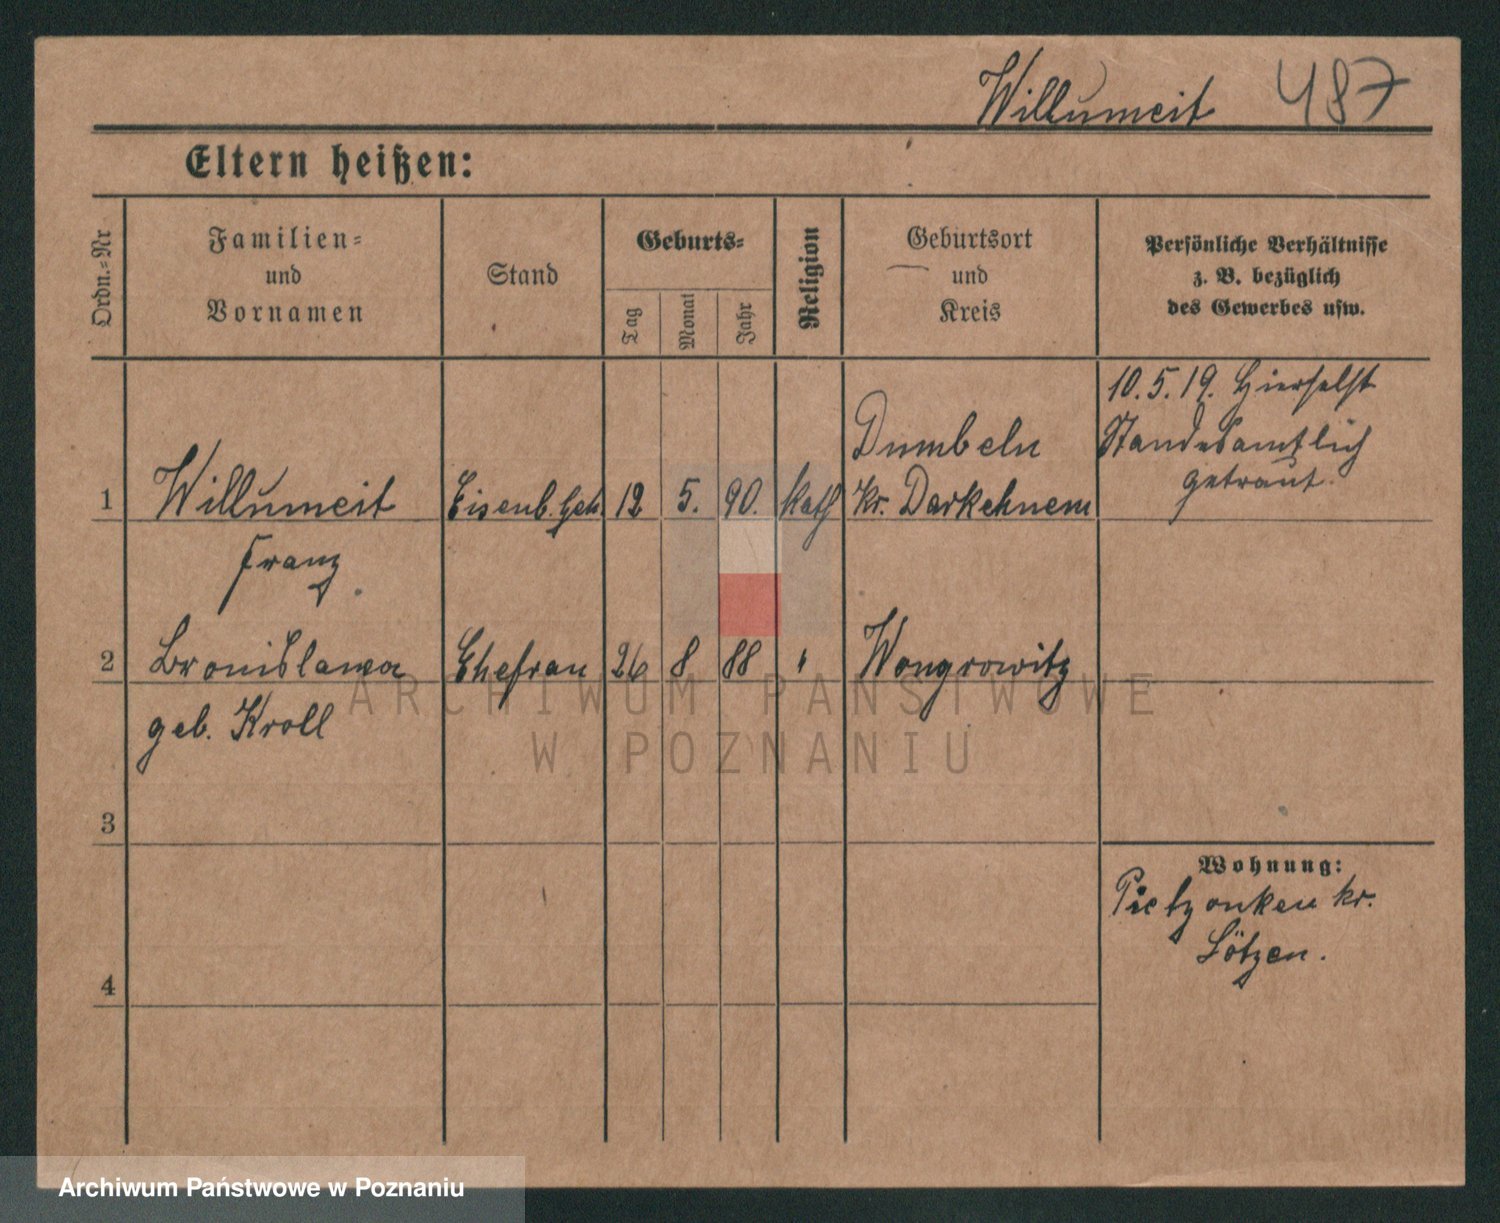 Willumeit 487
Eltern heißen:
Ordn.=Nr
Familien=
und
Vornamen
Stand
Geburts=
Tag
Monat
Jahr
Religion
Geburtsort
und
Kreis
Persönliche Verhältnisse
z. B. bezüglich
des Gewerbes usw.
1 Willumeit Eisenb. Geh. 12 5. 90. kath Dumbeln
Kr. Darkehnem
10.5.19. Hierselbst
Standesamtlich
getraut.
Franz
2 Bronislawa Ehefrau 26 8 88 " Wongrowitz
geb. Kroll
3
4
Wohnung:
Pietzonken kr.
Lötzen.
ARCHIWUM PAŃSTWOWE
W POZNANIU
Archiwum Państwowe w Poznaniu